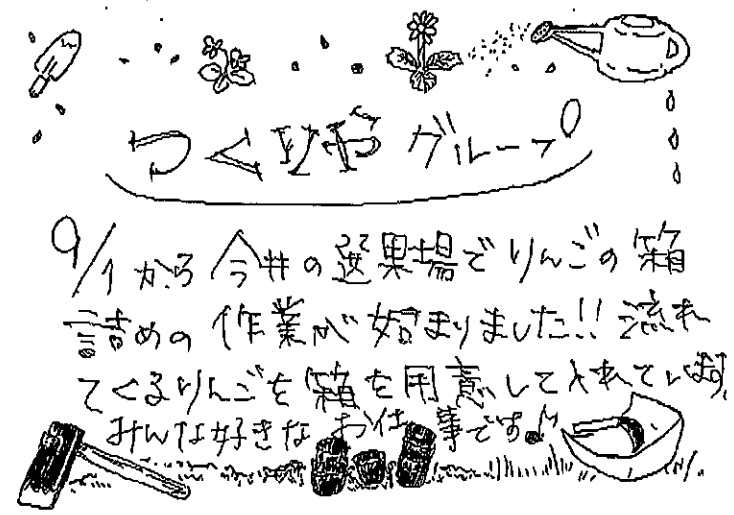 つくりやグループ
9/1から今井の選果場でりんごの箱
詰めの作業が始まりました!! 流れ
てくるりんごを箱を用意して入れています。
みんな好きなお仕事です♪